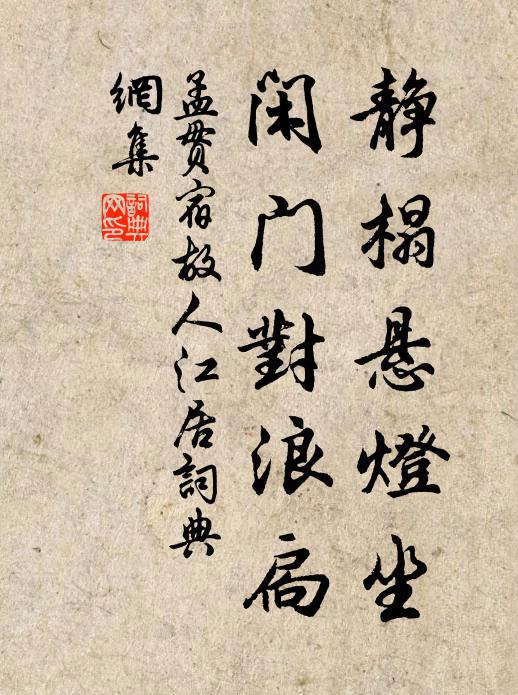 静榻悬燈坐
闲门對浪扃
孟贯宿故人江居詞典
網集
詞典网印